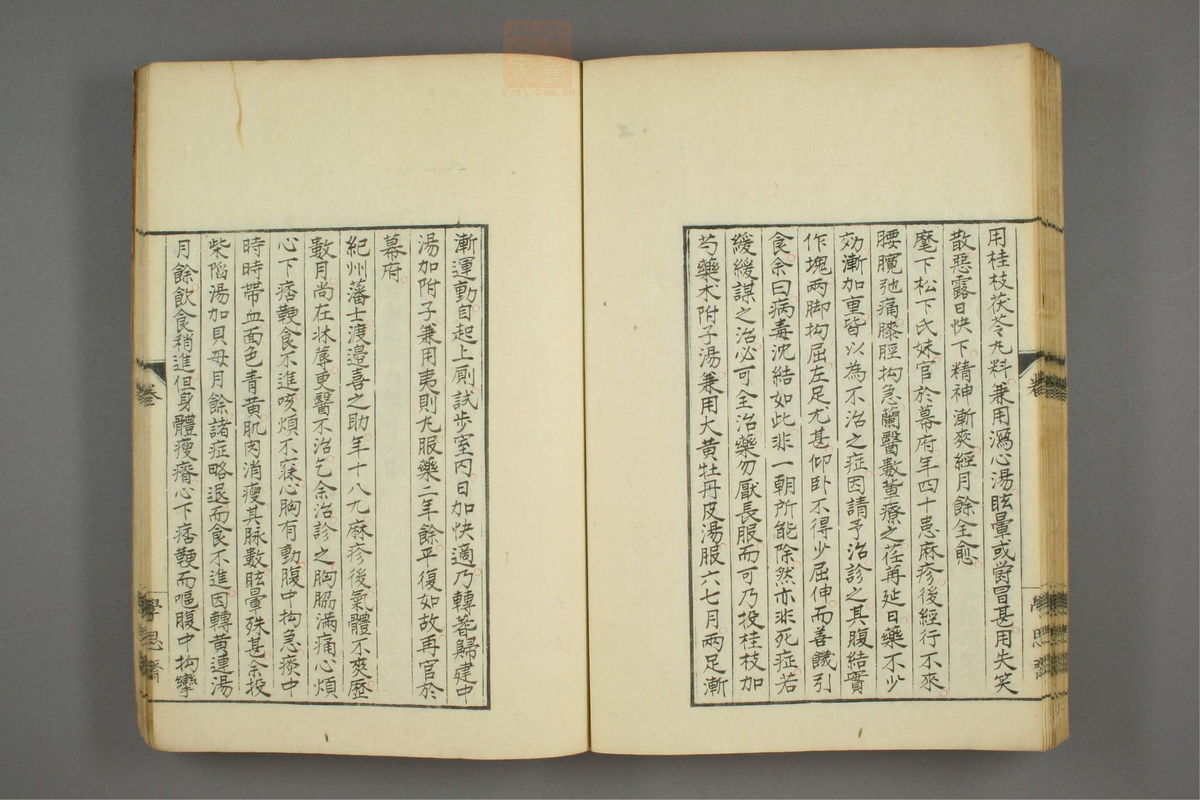 用桂枝茯苓丸料兼用瀉心湯眩暈或欝冒甚用失笑
散惡露日快下精神漸爽經月餘全愈
麾下松下氏妹官於幕府年四十患麻疹後經行不來
腰髖弛痛膝脛拘急蘭醫數輩療之荏苒延日藥不少
効漸加重皆以為不治之症因請予治診之其腹結實
作塊兩脚拘屈左足尤甚仰卧不得少屈伸而善饑引
食余曰病毒沈結如此非一朝所能除然亦非死症若
緩緩謀之治必可全治藥勿厭長服而可乃投桂枝加
芍藥朮附子湯兼用大黃牡丹皮湯服六七月兩足漸
漸運動自起上厠試步室內日加快適乃轉蓍歸建中
湯加附子兼用夷則丸服藥二年餘平復如故再官於
幕府
紀州藩士渡邉喜之助年十八九麻疹後氣體不爽歷
數月尚在牀蓐更醫不治乞余治診之胸脇滿痛心煩
心下痞鞕食不進咳煩不寐心胸有動腹中拘急痰中
時時帶血面色青黃肌肉消瘦其脉數眩暈殊甚余投
柴陷湯加貝母月餘諸症略退而食不進因轉黃連湯
月餘飲食稍進但身體瘦瘠心下痞鞕而嘔腹中拘攣
卷
學思齋
zysj.com.cn